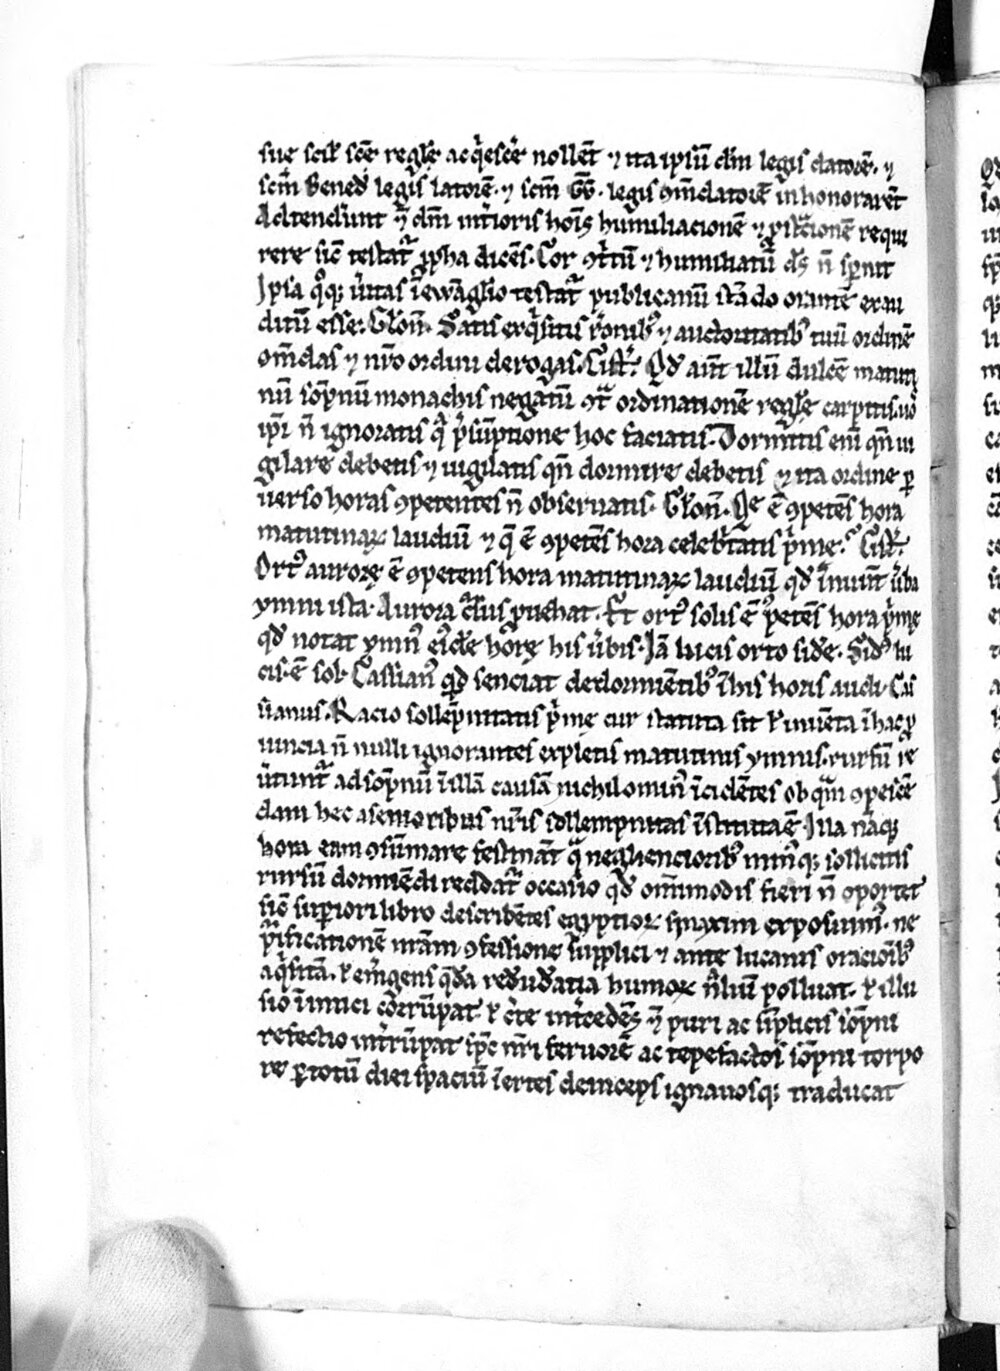 suę scił scē regłe acq̇escẽ nollēt ⁊ ita ipsū dñm legis datorē. ⁊
scm̄ Bened̄ legis latorē. ⁊ scm̄ GG. legis ɔm̄datorē inhonorarēt
Adtendūnt n̄ dm̄ int̓ioris hoīs humiliacionē ⁊ 9t̓cionē requi
rere sic̄ testat᷑ ꝓpha dicēs. Cor 9t̓tū ⁊ humiliatū ds̄ n̄ sp̄nit
Ipsa q̊q; ũitas ī ewāgłio testat᷑ publicanū stādo orantē exau
ditū esse. Cłon̄. Satis exq̇sitis rōnib⁹ ⁊ auctoritatib⁹ tuū ordinē
om̄das ⁊ nr̄o ordini derogas. Cist̄. Qd̄ aūt illū dulcē matuti
nū sōpnū monachis negatū 9t᷑ ordinationē regłę carpitis. uos
ip̄i n̄ ignoratis q̄ p̄sūptione hoc faciatis. Dormitis eni qn̄ ui
gilare debetis ⁊ uigilatis qn̄ dormire debetis ⁊ ita ordine ꝑ
uerso horas 9petentes n̄ obseruatis. Cłon̄. Q̄ ē 9petēs hora
matutinaꝝ laudiū ⁊ q̄ ē 9petēs hora celebr̄tatis p̄mę. Cist̄.
Ort⁹ aurorę ē 9petens hora matutinaꝝ laudiū qd̄ īnuūt ũba
ymni ista. Aurora ꝓuehat. Et ort⁹ solis ē 9petēs hora p̄mę
qd̄ notat ymn⁹ ei⁹dē horę his ũbis. Iā lucis orto sidē. Sid⁹ lu
cis. ē sol. Cassian⁹ qd̄ senciat de dormiētib⁹ ī his horis audi. Cas
sianus. Racio sollēpnitatis p̄mę cur statuta sit ł inuēta ī hac ꝓ
uincia n̄ nulli ignorantes expletis matutinis ymnis. rursū re
ũtunt᷑ ad sōpnū ī illā causā nichilomin⁹ īcidētes ob quā 9pescē
dam hec a senioribus nr̄is sollempnitas īstituta ē. Illa nāq;
hora eam 9sūmare festināt q̄ neglienciorib⁹ minusq; sollicitis
rursū dormiēdi recidat᷑ occasio qd̄ om̄imodis fieri n̄ oportet
sic̄ supiori libro describētes egyptioꝝ sinaxim exposuim⁹. ne
p̄ificationē nr̄am 9fessione supplici ⁊ ante lucanis oracioīb⁹
aq̇sitā. ł em̓gens q̄dā redūdātia humoꝝ polluat. ł illu
sio īimici corrūpat ł c̓te int̓cedēs ꝫ puri ac sīplicis sōpni
refectio int̓rūpat sp̄c nr̄i feruorē ac tepefactos sōpni torpo
re ꝑ totū diei spaciū īertes deinceps ignauosq; traducat